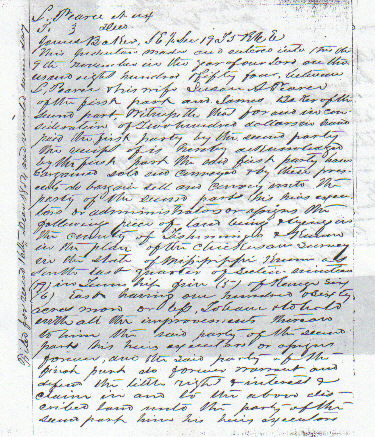 L. Pearce & ux
To } Deed
James Baker, S E ¼ Sec 19 T 5 R 6 E
This indenture made and entered into this the
9 th November in the year of our lord one tho
usand eight hundred & fifty four, between
L Pearce & his wife Susan A Pearce
of the first part and James Baker of the
second part Witnesseth that for and in con
sideration of Two hundred dollars in hand
paid the first party by the second party
the receipt of is hereby acknowledged
by the first part the said first party have
bargained sold and conveyed & by these pres
ents do bargain sell and convey unto the
party of the second part his heirs execu
tors or administrators or assigns the
following piece of land lying & being in
the County of Tishomingo &
in the plan of the Chickasaw Survey
in the State of Mississippi Known as
South East quarter of Section nineteen
(19) in Township five (5) of Range six
(6) East having one hundred & sixty
acres more or less, To have & to hold
with all the improvements thereon
to him the said party of the second
part his heirs executors or assigns
forever, and the said party of the
first part do forever warrant and
defend the title right & interest &
claim in and to the above des
cribed land unto the party of the
second part him his heirs executors